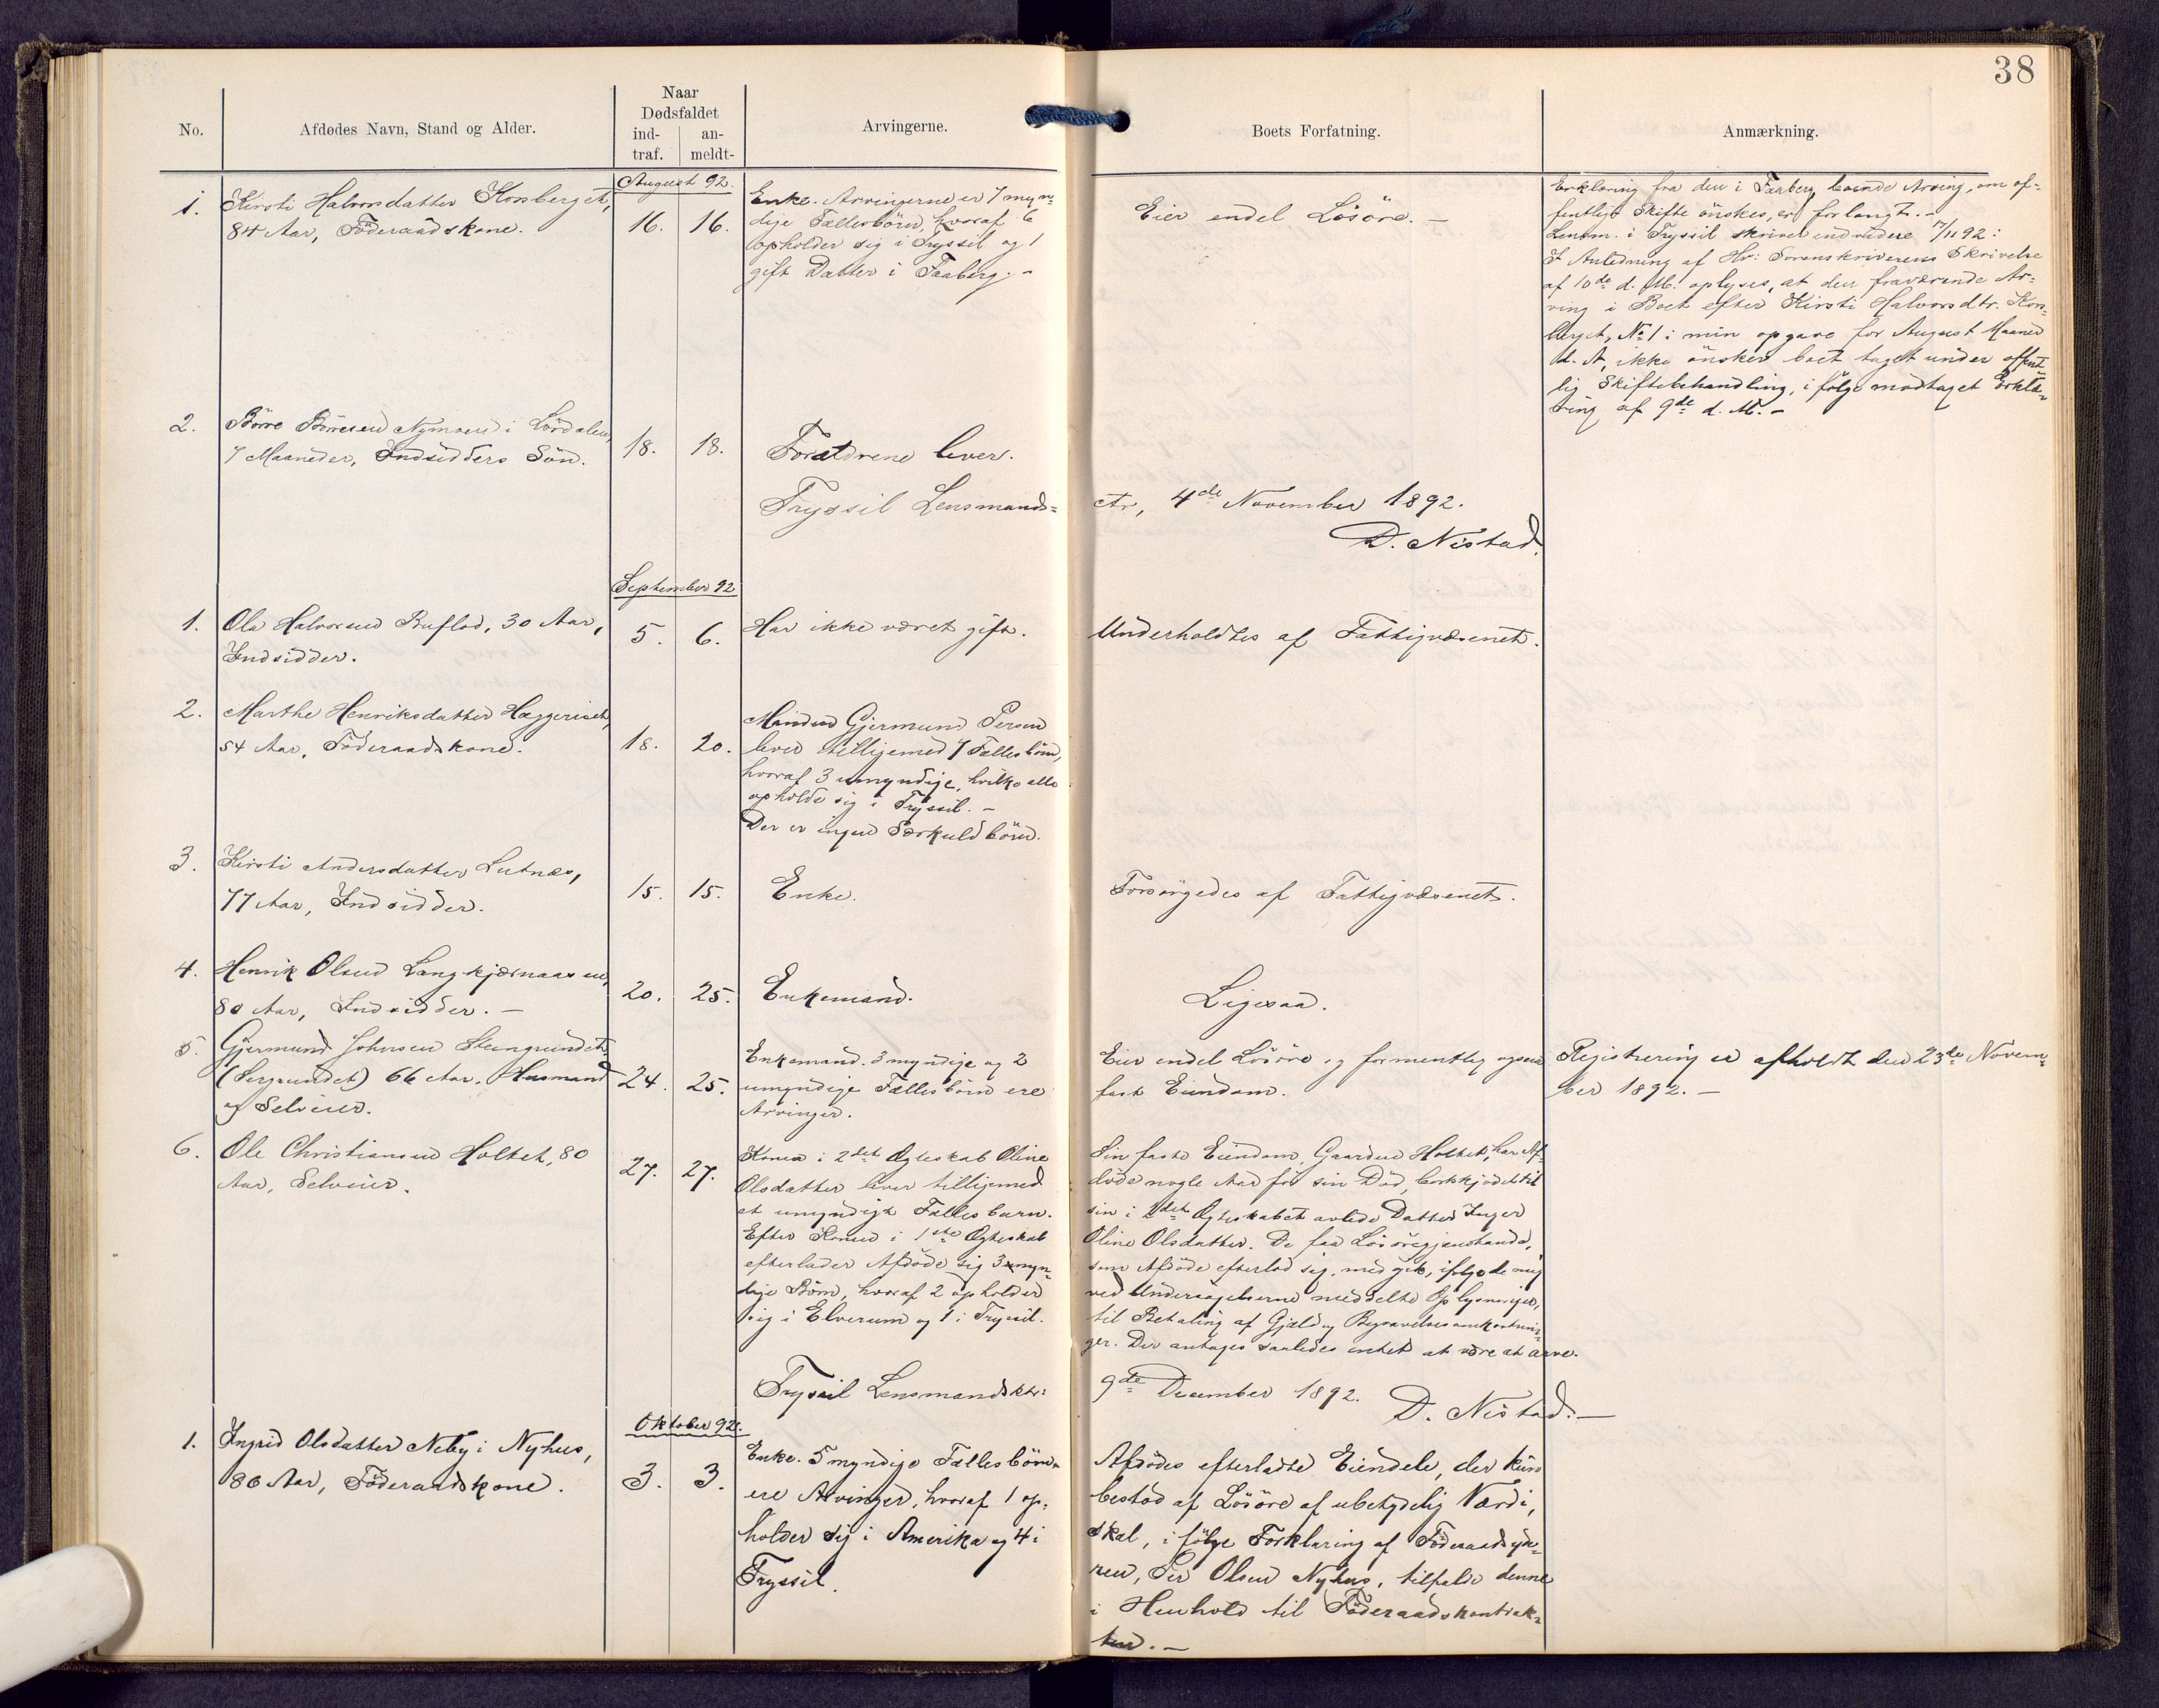 38
No.
Afdødes Navn, Stand og Alder.
Naar
Dødsfaldet
ind-
traf.
an-
meldt-
Arvingerne.
Boets Forfatning.
Anmærkning.
August 92.
1.
Kirsti Halvorsdatter Konsberget,
84 Aar, Föderaadskone.
16.
16.
Enke. Arvingerne er 7 myn-
dige Fællesbörn, hvoraf 6
opholder sig i Trysil og 1
gift Datter i Faaberg. -
Eier endel Lösöre. -
Erklæring fra den i Faaberg boende Arving, om of-
fentligt Skifte önskes, er forlangt. -
Lensm. i Trysil skriver endvidere 17/11 92:
I Anledning af Hr: Sorenskriverens Skrivelse
af 10de d. M. oplyses, at den fraværende Ar-
ving i Boet efter Kirsti Halvorsdtr. Kons-
berget, No 1 i min opgave for August Maaned
d. A, ikke önsker boet taget under offent-
lig Skiftebehandling, i fölge modtaget Erklæ-
ring af 9de d. M. -
2.
Börre Börresen Nymoen i Lördalen,
7 Maaneder, Indsidders Sön.
18.
18.
Forældrene lever.
Tryssil Lensmands-
ktr, 4de November 1892.
D. Nistad.
September 92
1.
Ola Halvorsen Buflod, 30 Aar,
Indsidder.
5.
6.
Har ikke været gift.
Underholdtes af Fattigvæsenet.
2.
Marthe Henriksdatter Hæggeriset,
54 Aar, Föderaadskone.
18.
20.
Manden Gjermund Persen
lever tilligemed 7 Fællesbörn,
hvoraf 3 umyndige, hvilke alle
opholde sig i Trysil. -
Der er ingen Særkuldbörn.
3.
Kirsti Andersdatter Lutnæs,
77 Aar, Indsidder.
15.
15.
Enke.
Forsörgedes af Fattigvæsenet.
4.
Henrik Olsen Langkjærnaasen,
80 Aar, Indsidder. -
20.
25.
Enkemand.
Ligesaa.
5.
Gjermund Johnsen Stengrundet
66 Aar. Husmand
og Selveier.
24.
25.
Enkemand. 3 myndige og 2
umyndige Fællesbörn ere
Arvinger.
Eier endel Lösöre og formentlig ogsaa
fast Eiendom.
Registrering er afholdt den 23de Novem-
ber 1892. -
6.
Ole Christiansen Holtet, 80
Aar, Selveier.
27.
27.
Konen i 2det Ægteskab Oline
Olsdatter lever tilligemed
et umyndigt Fællesbarn.
Efter Konen i 1ste Ægteskab
efterlader Afdöde sig 3 myn-
dige Börn, hvoraf 2 opholder
sig i Elverum og 1 i Trysil.
Sin faste Eiendom, Gaarden Holtet, har Af-
döde nogle Aar för sin Död, bortskjödet til
sin i 2det Ægteskabet avlede Datter Inger
Oline Olsdatter. De faa Lösöregjenstande,
som Afdöde efterlod sig, medgik, ifölge de mig
ved Undersögelserne meddelte Oplysninger,
til Betaling af Gjæld og Begravelsesomkostnin-
ger. Der antages saaledes intet at være at arve.
Trysil Lensmandsktr:
9de December 1892.
D. Nistad. -
Oktober 92.
1.
Ingrid Olsdatter Neby i Nyhus,
86 Aar, Föderaadskone.
3.
3.
Enke. 5 myndige Fællesbörn
ere Arvinger, hvoraf 1 op-
holder sig i Amerika og 4 i
Tryssil.
Afdödes efterladte Eiendele, der kun
bestod af Lösöre af ubetydelig Værdi,
skal, i fölge Forklaring af Föderaadsyde-
ren, Per Olsen Nyhus, tilfalde denne
i Henhold til Föderaadskontrak-
ten. -